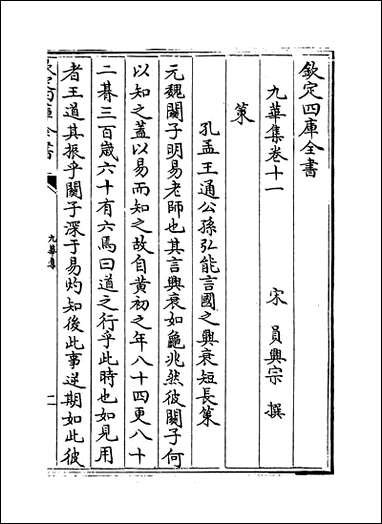 欽定四庫全書
九華集卷十一
宋 員興宗 撰
策
孔孟王通公孫弘能言國之興衰短長策
元魏關子明易老師也其言興衰如龜兆然彼關子何
以知之蓋以易而知之故自黃初之年八十四更八十
二朞三百歲六十有六焉曰道之行乎此時也如見用
者王道其振乎關子深于易灼知後此事逆期如此彼
九華集